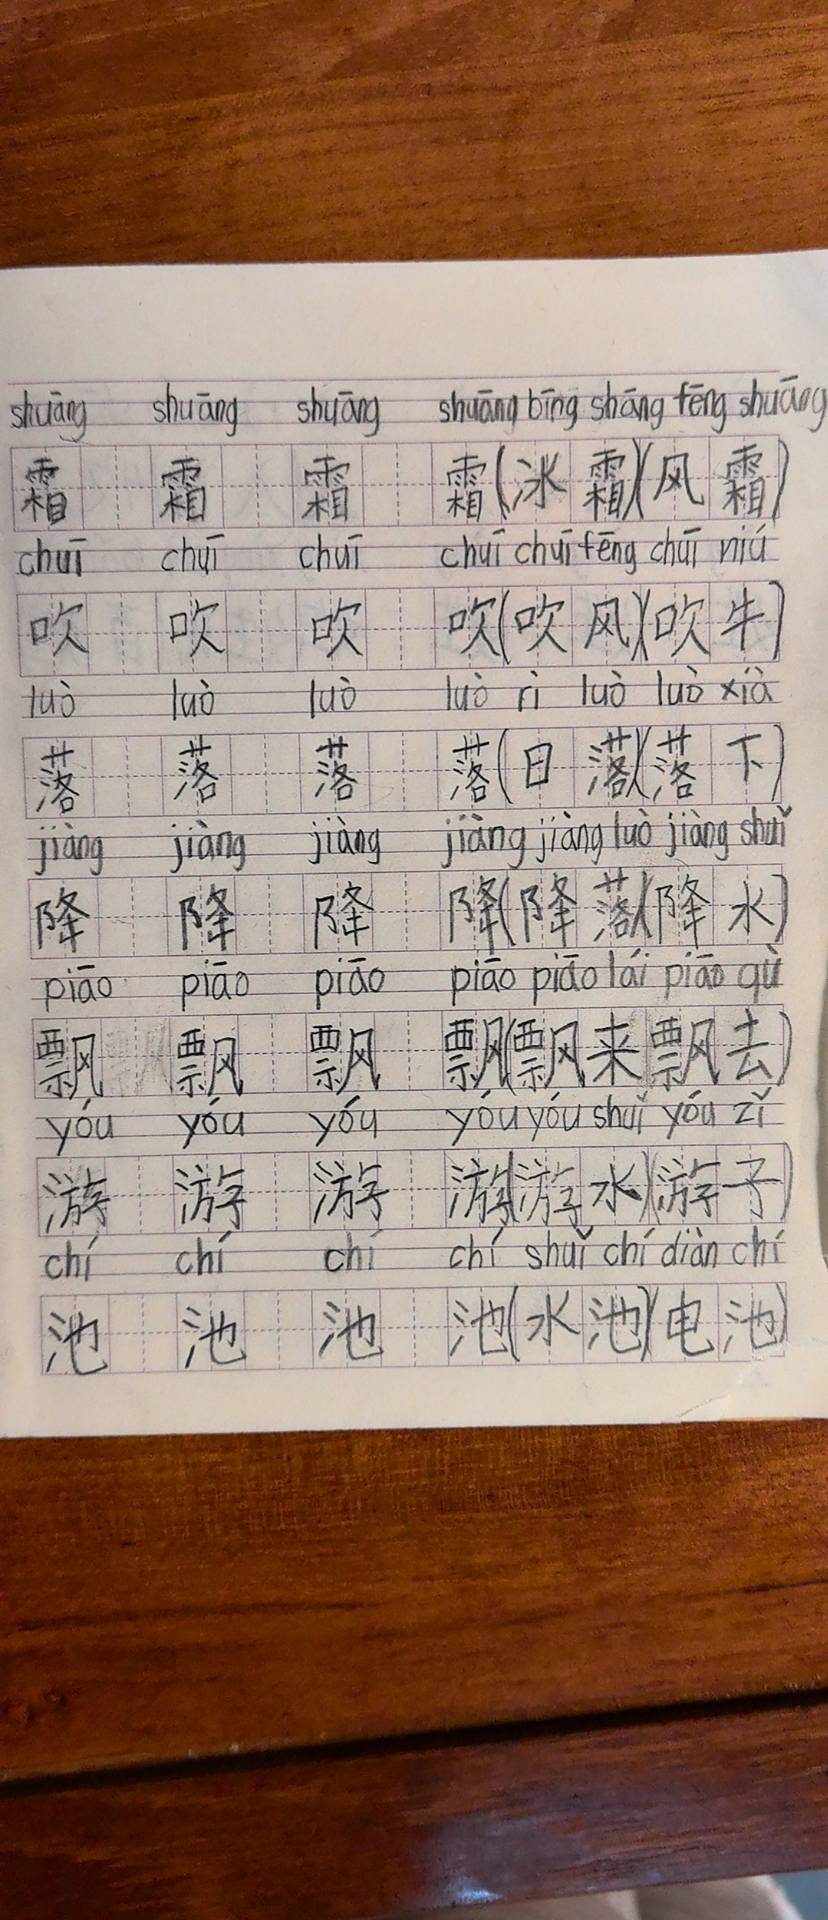 shuāng shuāng shuāng shuāng bīng shāng fēng shuāng
霜 霜 霜 霜(冰霜)(风霜)
chuī chuī chuī chuī chuī fēng chuī niú
吹 吹 吹 吹(吹风)(吹牛)
luò luò luò luò rì luò luò xià
落 落 落 落(日落)(落下)
jiàng jiàng jiàng jiàng jiàng luò jiàng shuǐ
降 降 降 降(降落)(降水)
piāo piāo piāo piāo piāo lái piāo qù
飘 飘 飘 飘(飘来飘去)
yóu yóu yóu yóu yóu shuǐ yóu zǐ
游 游 游 游(游水)(游子)
chí chí chí chí shuǐ chí diàn chí
池 池 池 池(水池)(电池)